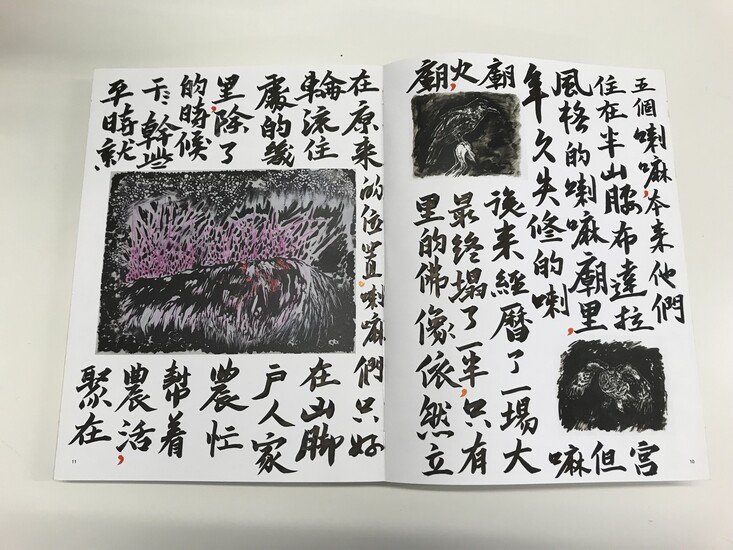 五個喇嘛,本来他們
住在半山腰布達拉
宮
風格的喇嘛廟里,
但
年久失修的喇
嘛
廟
後来經曆了一場大
火,
最終塌了一半,只有
廟
里的佛像依然立
在原来的位置,喇嘛們只好
輪流住
在山脚
處的幾
户人家
里,除了
農忙
的時候
幫着
幹些
農活,
平時就
聚在
10
11